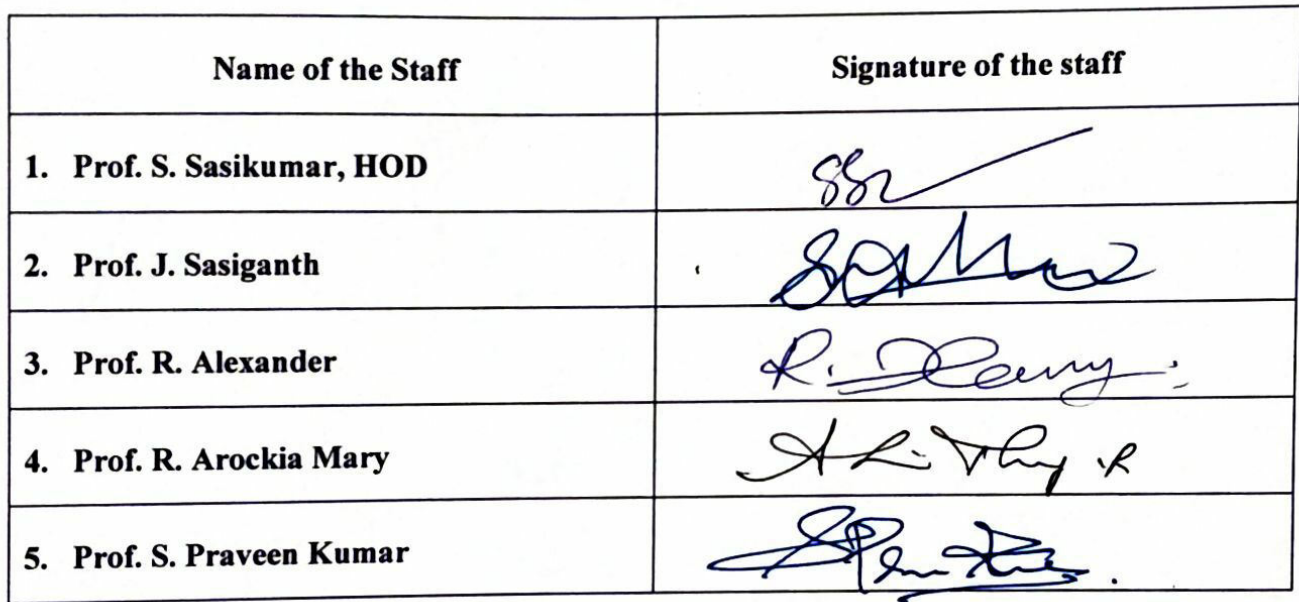 Name of the Staff
Signature of the staff
1. Prof. S. Sasikumar, HOD
2. Prof. J. Sasiganth
3. Prof. R. Alexander
R.
4. Prof. R. Arockia Mary
5. Prof. S. Praveen Kumar